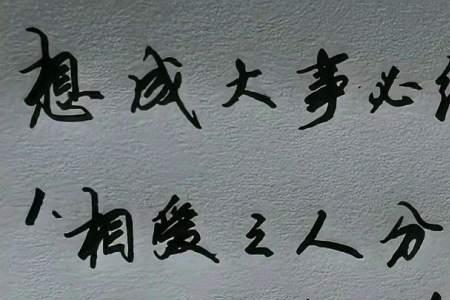 想成大事必
1、相爱之人分